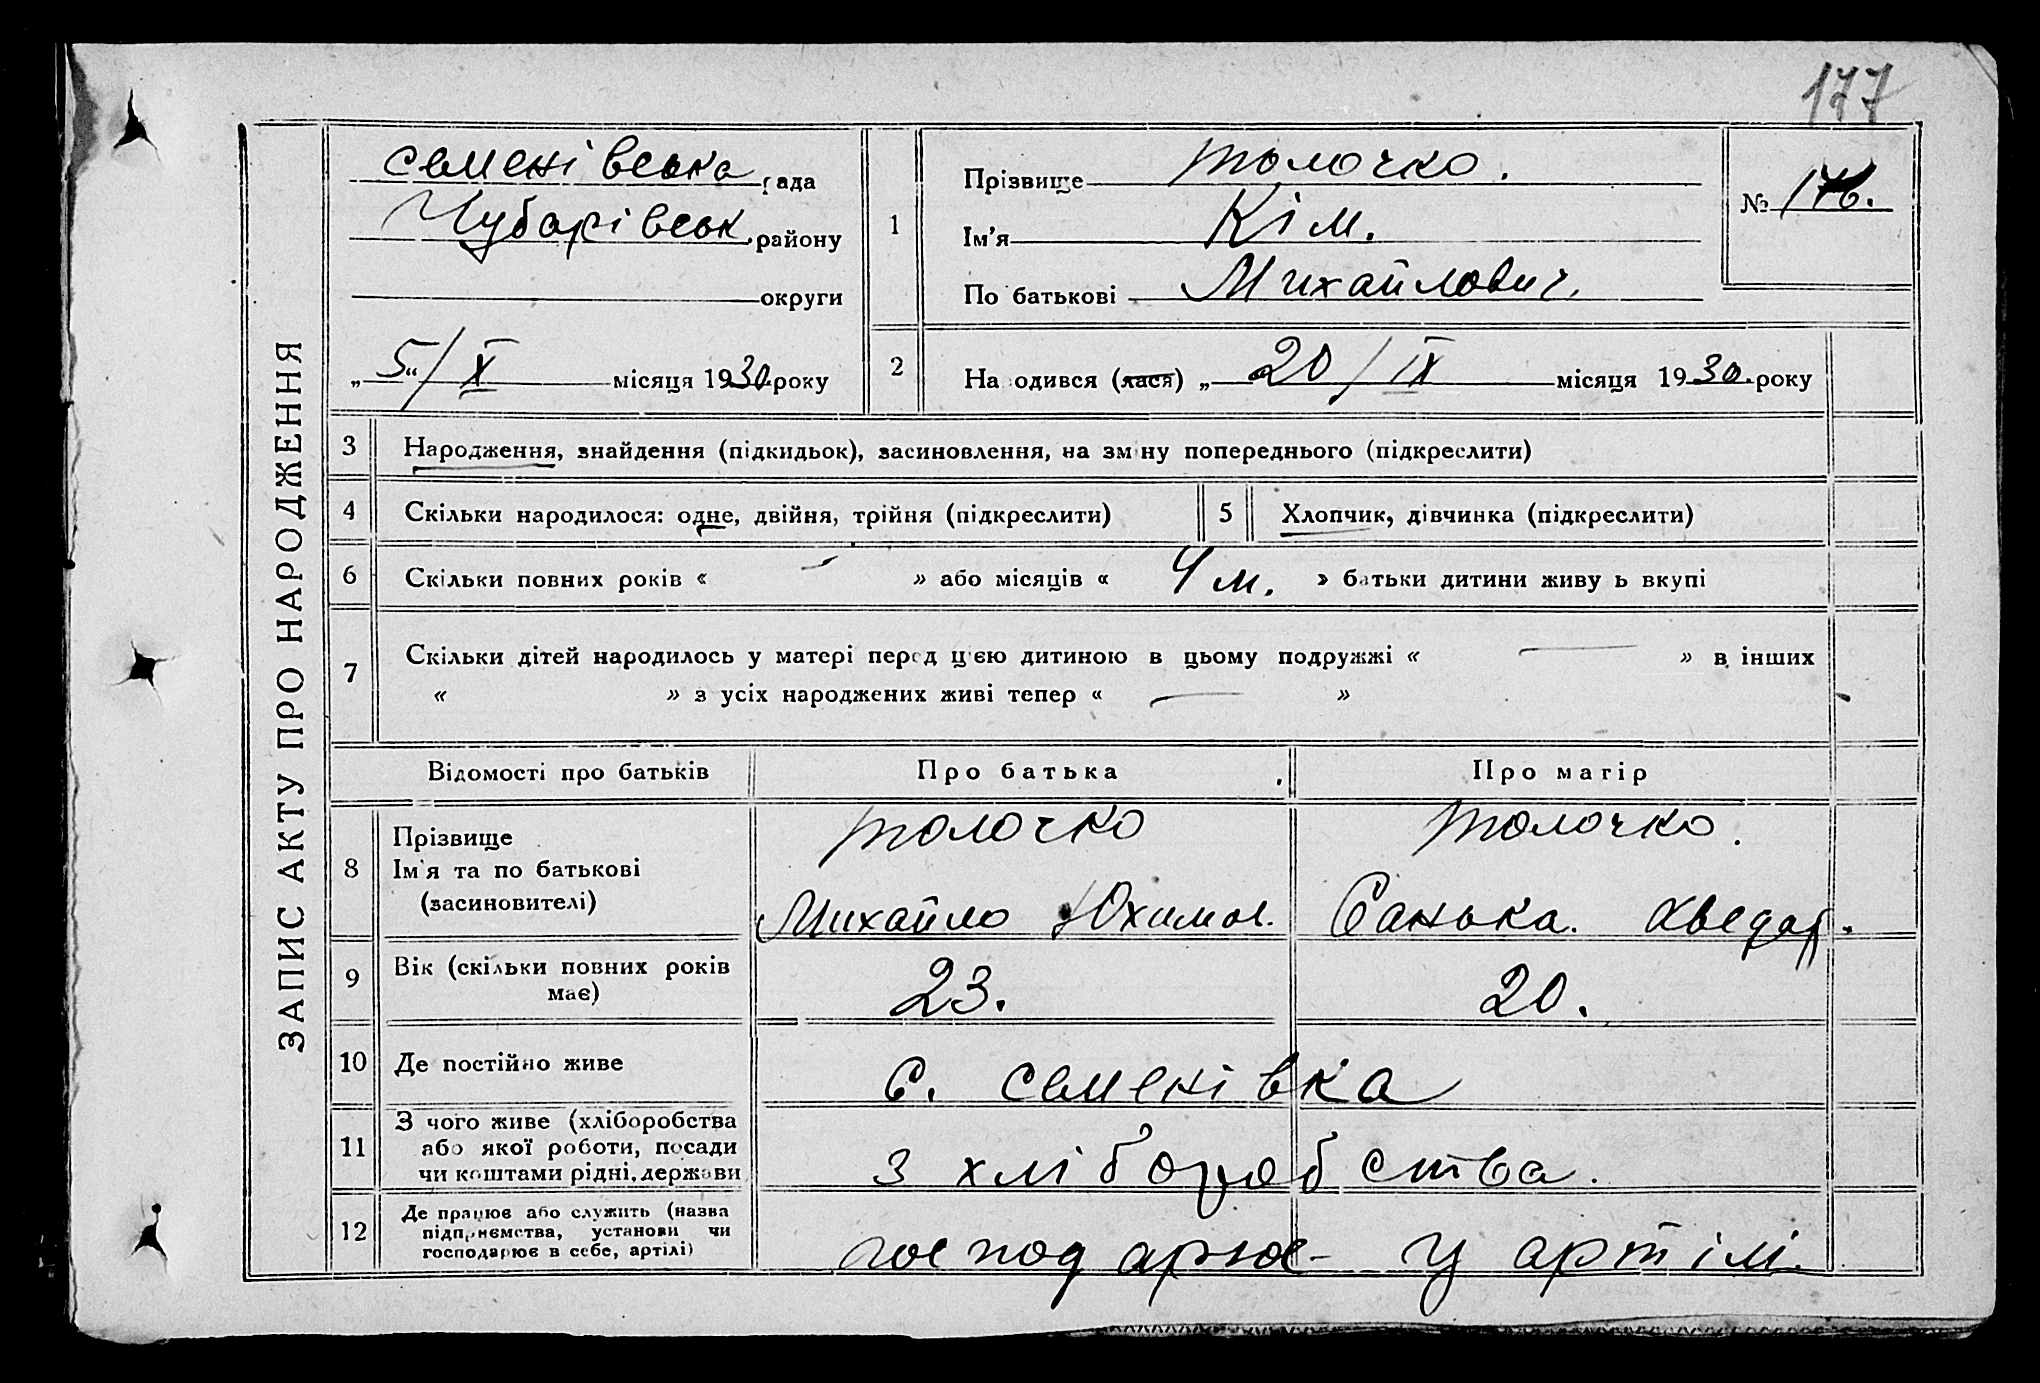 177
ЗАПИС АКТУ ПРО НАРОДЖЕННЯ
Семенівська рада
Чубарівськ. району
округи
„5“/X місяця 1930 року
1
Прізвище Толочко.
Ім’я Кім.
По батькові Михайлович.
№ 176.
2
На одився (лася) „ 20/IX місяця 1930. року
3 Народження, знайдення (підкидьок), засиновлення, на зміну попереднього (підкреслити)
4 Скільки народилося: одне, двійня, трійня (підкреслити)
5 Хлопчик, дівчинка (підкреслити)
6 Скільки повних років « — » або місяців « 4 м. » батьки дитини живу ь вкупі
7 Скільки дітей народилось у матері перед цією дитиною в цьому подружжі « — » в інших
« » з усіх народжених живі тепер « — »
Відомості про батьків Про батька Про матір
8 Прізвище
Ім'я та по батькові
(засиновителі)
Толочко
Михайло Юхимов.
Толочко.
Санька. Хведор.
9 Вік (скільки повних років
має)
23. 20.
10 Де постійно живе С. Семенівка
11 З чого живе (хліборобства
або якої роботи, посади
чи коштами рідні, держави
з хліборобства.
12 Де працює або служить (назва
підприємства, установи чи
господарює в себе, артілі)
господарює у артілі.